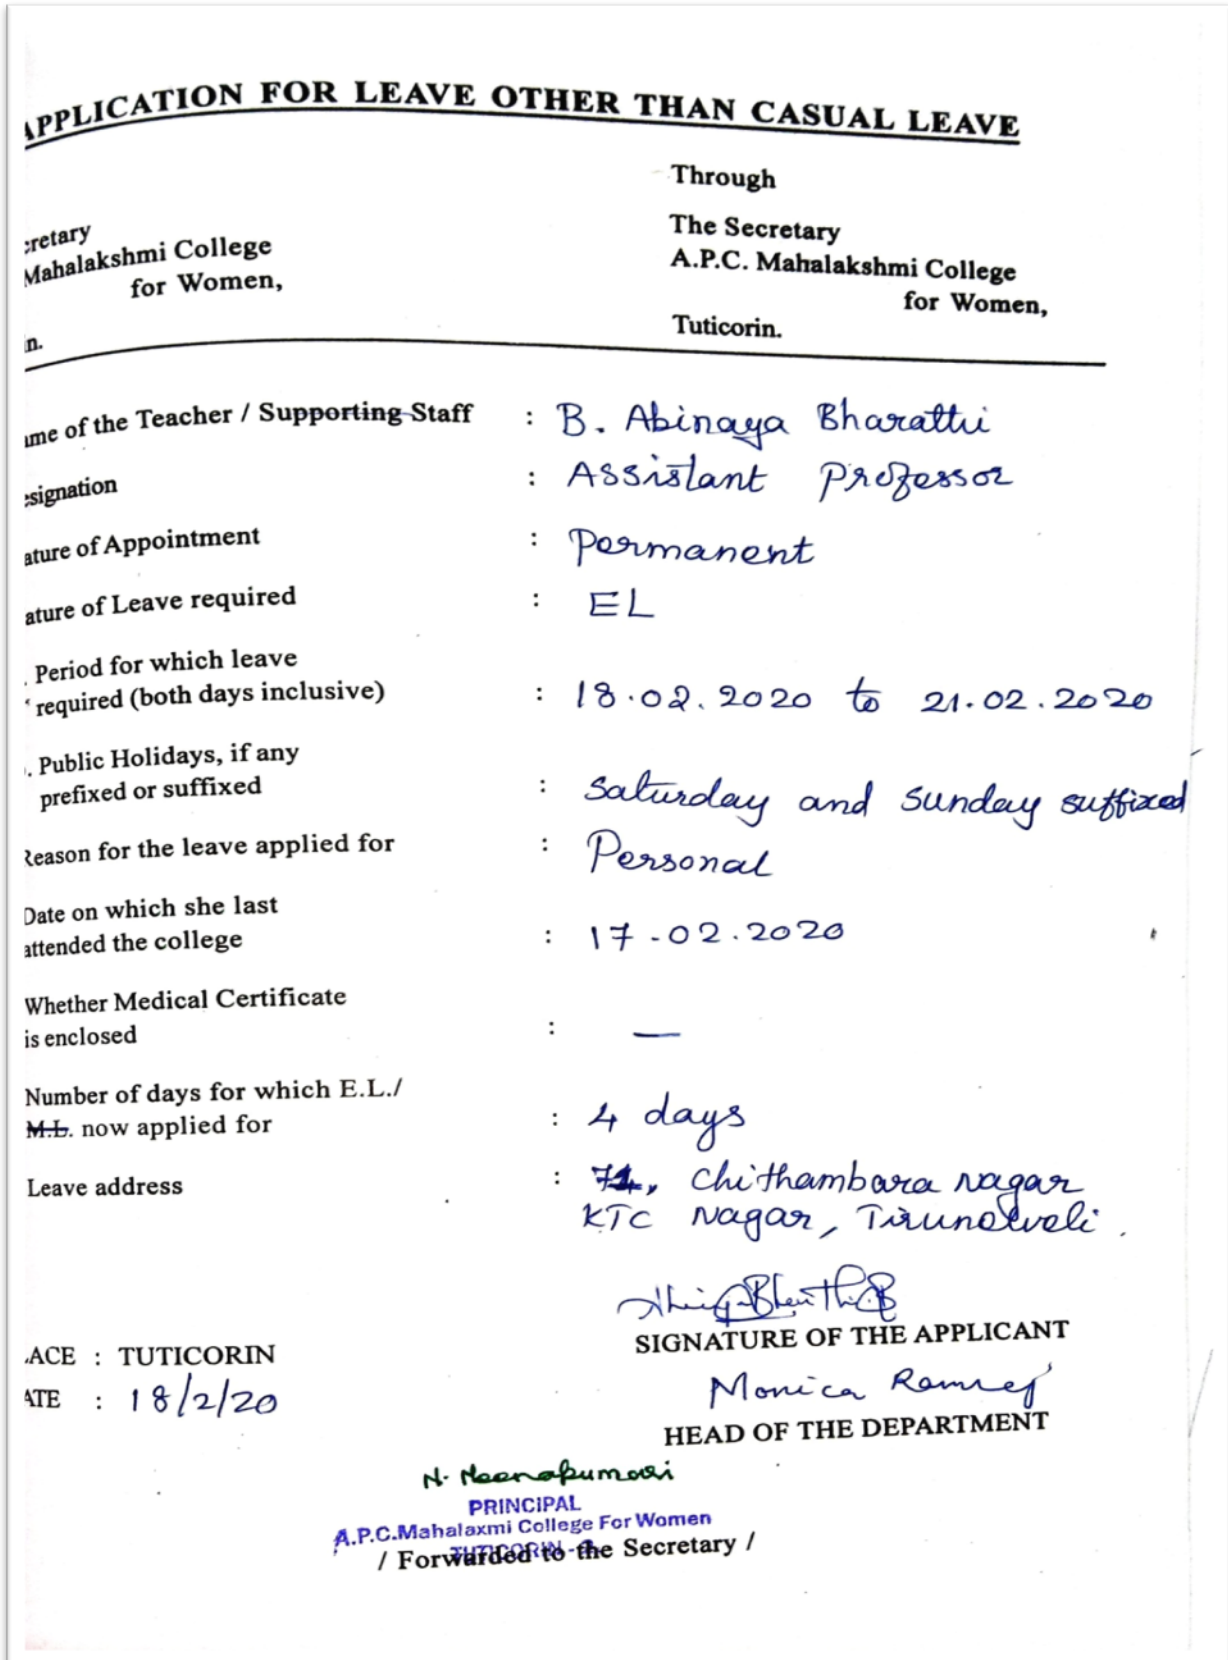 APPLICATION FOR LEAVE OTHER THAN CASUAL LEAVE
Through
cretary
Mahalakshmi College
for Women,
n.
The Secretary
A.P.C. Mahalakshmi College
for Women,
Tuticorin.
ame of the Teacher / Supporting Staff : B. Abinaya Bharathi
esignation : Assistant Professor
ature of Appointment : Permanent
ature of Leave required : EL
. Period for which leave
required (both days inclusive) : 18.02.2020 to 21.02.2020
. Public Holidays, if any
prefixed or suffixed : Saturday and Sunday suffixed
Reason for the leave applied for : Personal
Date on which she last
attended the college : 17-02.2020
Whether Medical Certificate
is enclosed : —
Number of days for which E.L./
M.L. now applied for : 4 days
Leave address : Chithambara Nagar
KTC Nagar, Tirunelveli.
SIGNATURE OF THE APPLICANT
ACE : TUTICORIN
ATE : 18/2/20
Monica
HEAD OF THE DEPARTMENT
N. Meenakumari
PRINCIPAL
A.P.C.Mahalaxmi College For Women
TUTICORIN -
/ Forwarded to the Secretary /